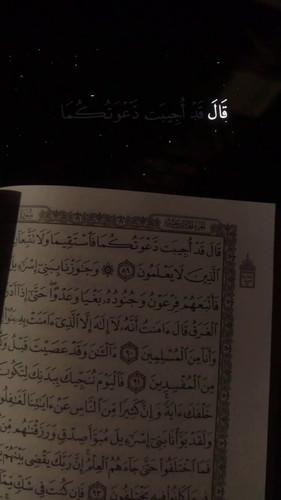 قَالَ قَدْ أُجِيبَت دَّعْوَتُكُمَا
قَالَ قَدْ أُجِيبَت دَّعْوَتُكُمَا فَٱسْتَقِيمَا وَلَا تَتَّبِعَآنِّ
ٱلَّذِينَ لَا يَعْلَمُونَ ٨٩ وَجَٰوَزْنَا بِبَنِىٓ إِسْرَٰٓءِيلَ
فَأَتْبَعَهُمْ فِرْعَوْنُ وَجُنُودُهُۥ بَغْيًا وَعَدْوًا حَتَّىٰٓ إِذَآ أَدْرَكَهُ
ٱلْغَرَقُ قَالَ ءَامَنتُ أَنَّهُۥ لَآ إِلَٰهَ إِلَّا ٱلَّذِىٓ ءَامَنَتْ بِهِۦ بَنُوٓا۟
وَأَنَا۠ مِنَ ٱلْمُسْلِمِينَ ٩٠ ءَآلْـَٰٔنَ وَقَدْ عَصَيْتَ قَبْلُ وَكُنتَ
مِنَ ٱلْمُفْسِدِينَ ٩١ فَٱلْيَوْمَ نُنَجِّيكَ بِبَدَنِكَ لِتَكُونَ
خَلْفَكَ ءَايَةً وَإِنَّ كَثِيرًا مِّنَ ٱلنَّاسِ عَنْ ءَايَٰتِنَا لَغَٰفِلُونَ
وَلَقَدْ بَوَّأْنَا بَنِىٓ إِسْرَٰٓءِيلَ مُبَوَّأَ صِدْقٍ وَرَزَقْنَٰهُم مِّنَ
فَمَا ٱخْتَلَفُوا۟ حَتَّىٰ جَآءَهُمُ ٱلْعِلْمُ إِنَّ رَبَّكَ يَقْضِى بَيْنَهُمْ
كَانُوا۟ فِيهِ يَخْتَلِفُونَ ٩٣ فَإِن كُنتَ فِى شَكٍّ مِّمَّآ